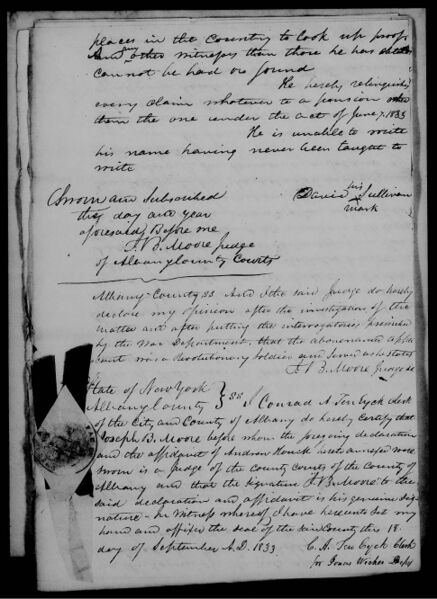 places in the Country to look up proof
And any other Witness than those he has
cannot be had or found
He hereby relinquishes
every claim whatever to a pension
than the one under the act of June 7. 1833
He is unable to write
his name having never been taught to
write
Sworn and Subscribed
this day and year
aforesaid Before me
J. B. Moore Judge
of Albany County Courts
his
David Sullivan
mark
Albany County SS. And I the said Judge do hereby
declare my opinion after the investigation of the
matter and after putting the interrogatories prescribed
by the War Department, that the above named
was a Revolutionary soldier and served as states
J. B. Moore Judge &c
State of New York
Albany County } SS I Conrad A. Ten Eyck clerk
of the City and County of Albany do hereby certify that
Joseph B. Moore before whom the foregoing declaration
and the affidavit of Andrew Houck were
sworn is a Judge of the County Courts of the County of
Albany and that the signature J. B. Moore to the
said declaration and affidavit is his genuine sig-
nature - In Witness whereof I have hereunto set my
hand and affixed the seal of the said County this 18
day of September A.D. 1833
C. A. Ten Eyck Clerk
for Jonas Wickes Depy